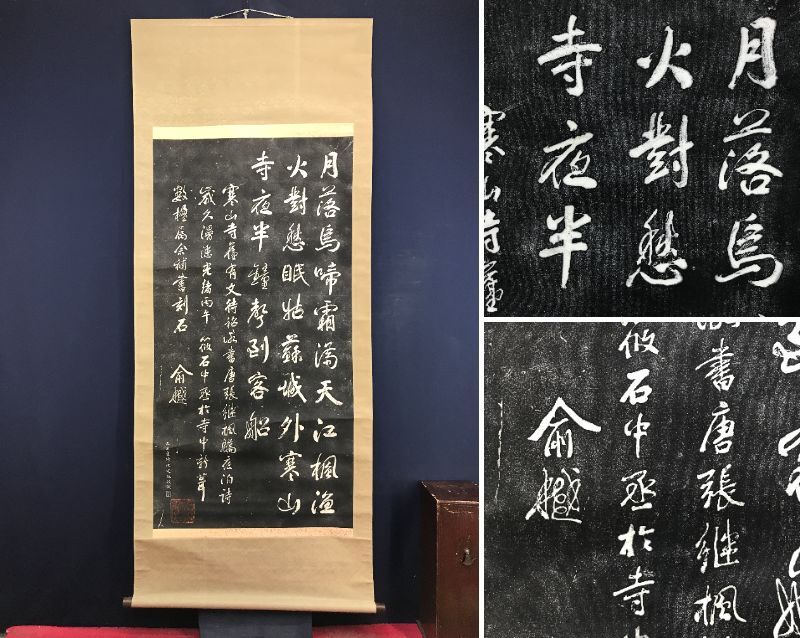 月落烏啼霜滿天江楓漁
火對愁眠姑蘇城外寒山
寺夜半鐘聲到客船
寒山寺舊有文待詔所書唐張継楓橋夜泊詩
歲久漫漶光緒丙午筱石中丞於寺中新葺
數楹屬余補書刻石
俞樾
月落烏
火對愁
寺夜半
寒山寺舊
書唐張継楓
筱石中丞於寺
俞樾